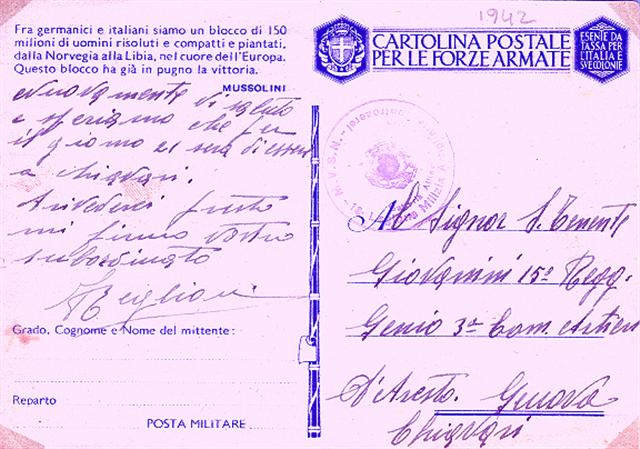 Fra germanici e italiani siamo un blocco di 150
milioni di uomini risoluti e compatti e piantati,
dalla Norvegia alla Libia, nel cuore dell'Europa.
Questo blocco ha già in pugno la vittoria.
MUSSOLINI
Nuovamente vi saluto
e speriamo che per
il giorno 21 sera di essere
a Chiavari.
Arivederci presto
mi firmo vostro
subordinato
Grado, Cognome e Nome del mittente:
Reparto
POSTA MILITARE
1942
CARTOLINA POSTALE
PER LE FORZE ARMATE
ESENTE DA
TASSA PER
L'ITALIA
SVE COLONIE
M.V.S.N.
Al Signor S. Tenente
Giovannini 15º Regg.
Genio 3ª Com. Artieri
D'Aresto. Genova
Chiavari